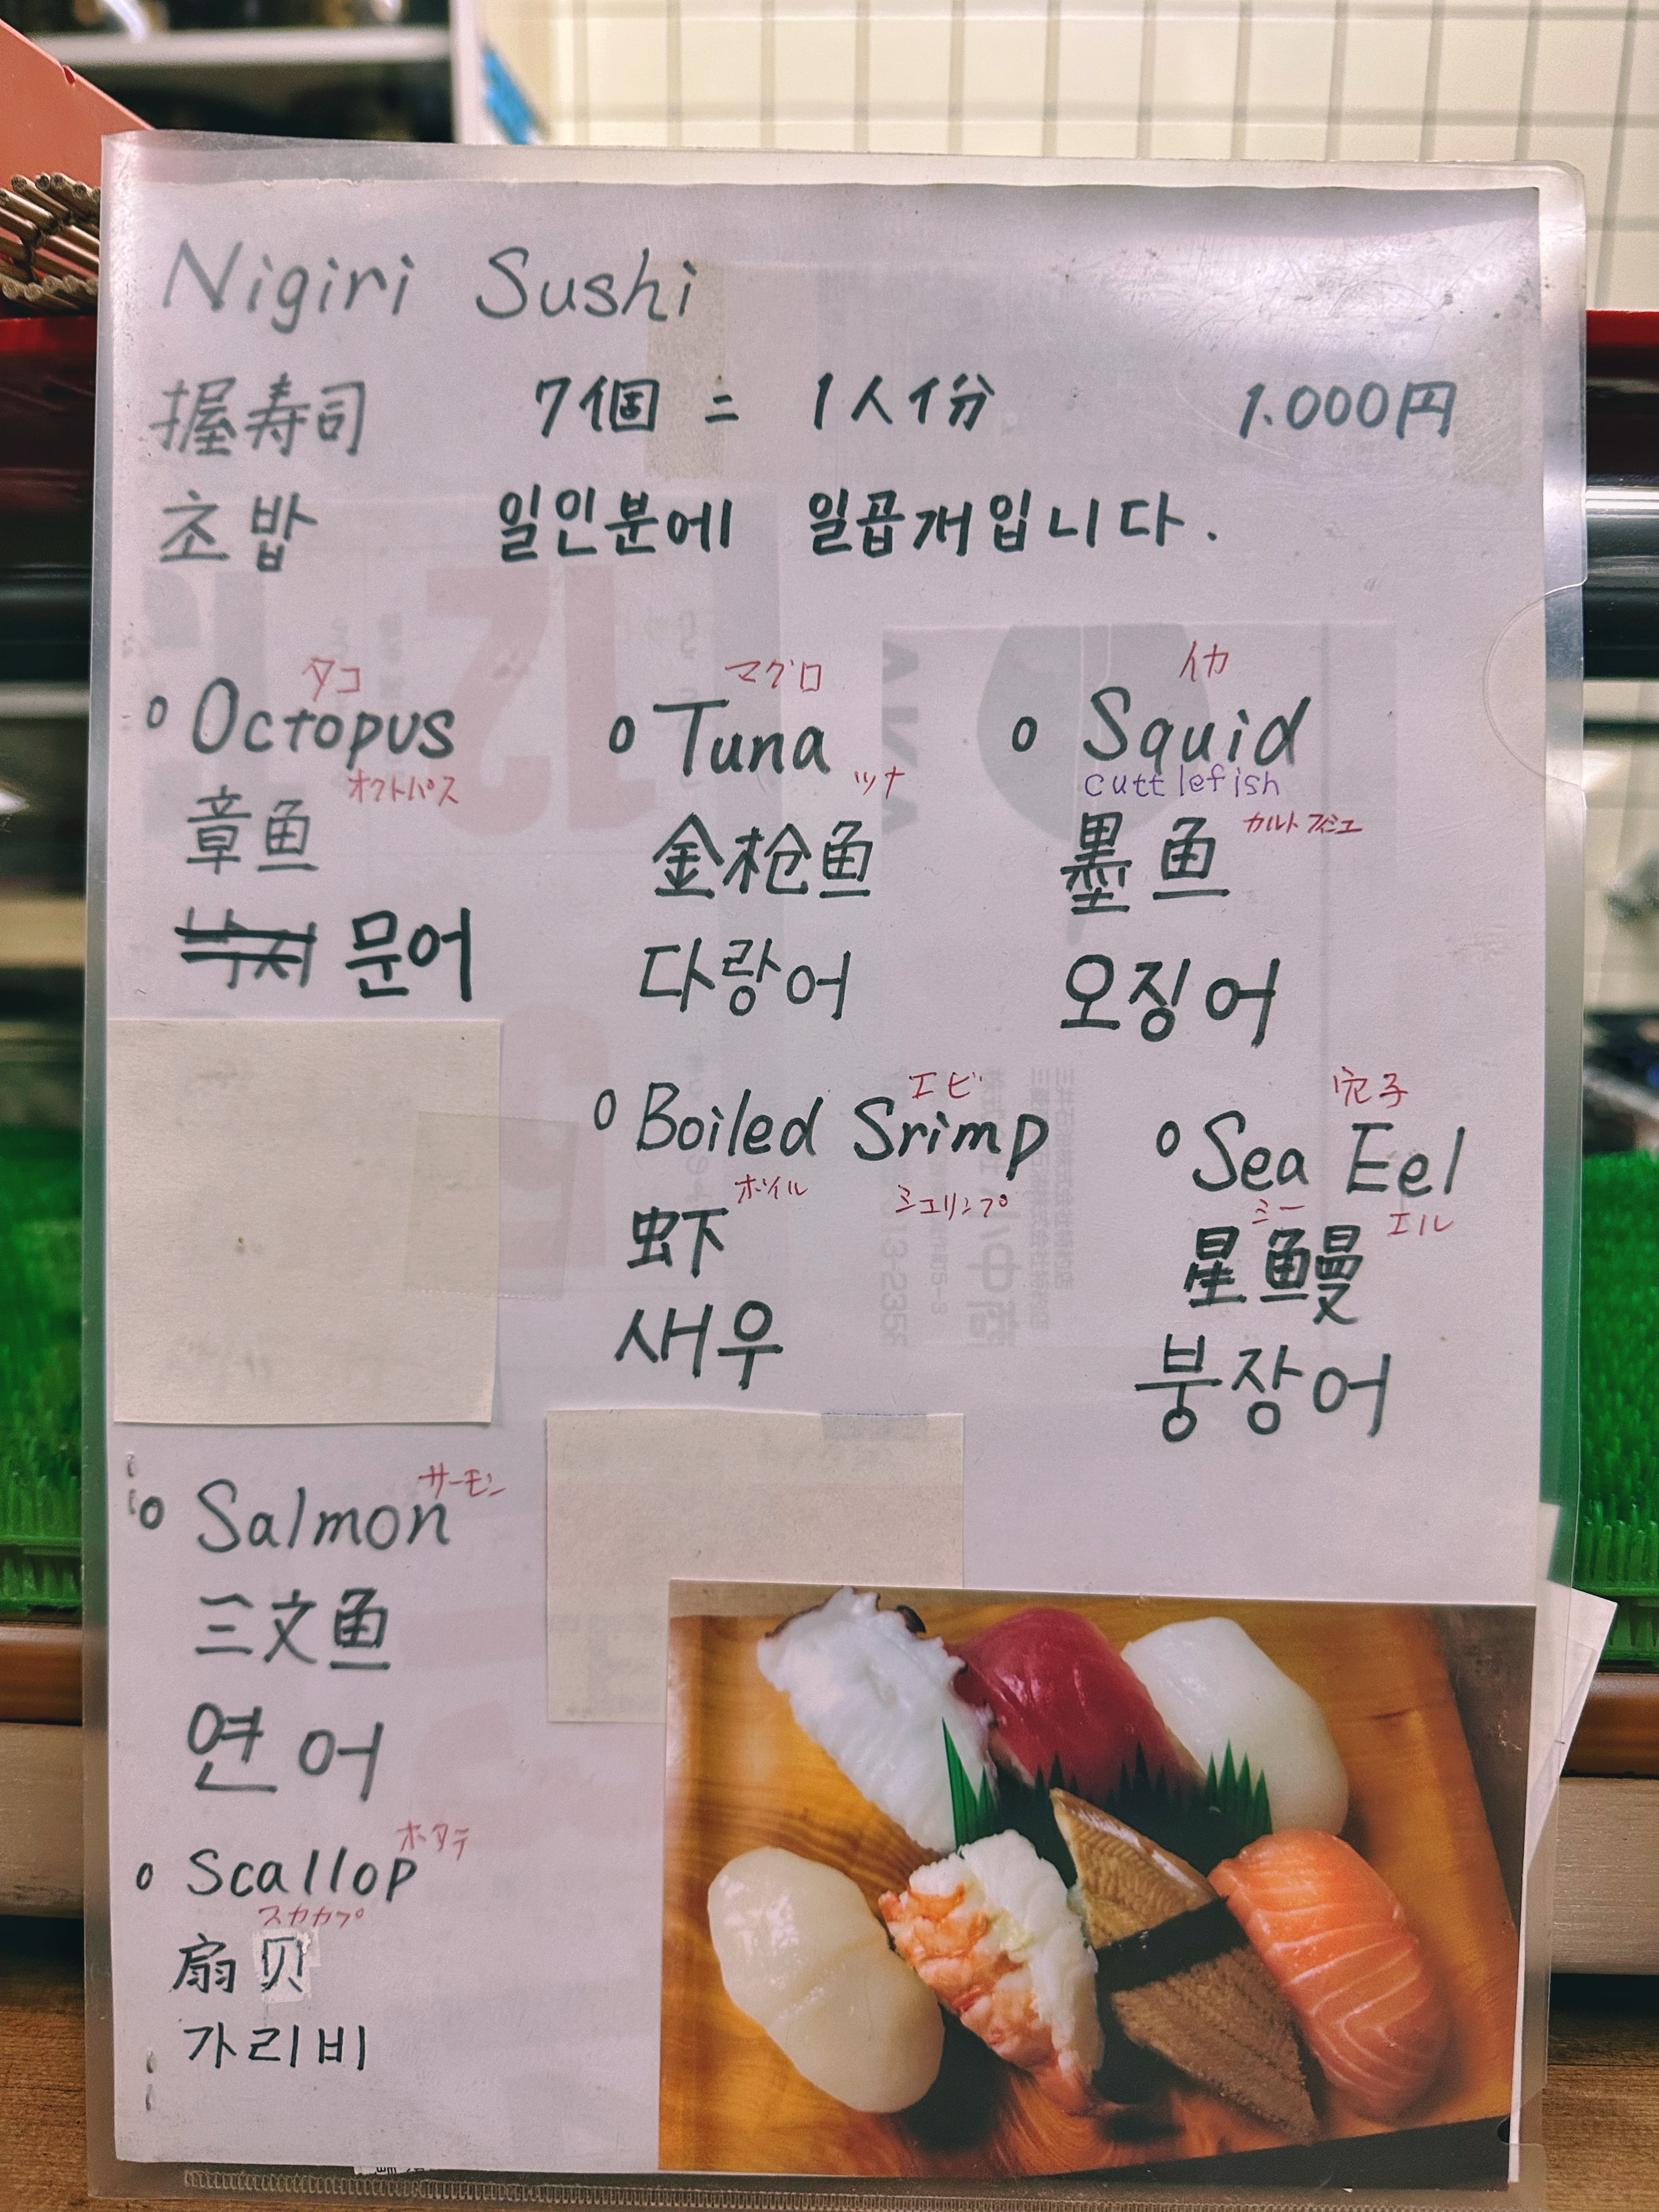 Nigiri Sushi
握寿司 7個 = 1人分 1.000円
초밥 일인분에 일곱개입니다.
タコ
o Octopus
オクトパス
章鱼
문어
マグロ
o Tuna
ツナ
金枪鱼
다랑어
イカ
o Squid
cuttlefish
カルトフィシュ
墨鱼
오징어
エビ
o Boiled Srimp
ボイル シュリンプ
虾
새우
穴子
o Sea Eel
シー エル
星鳗
붕장어
サーモン
o Salmon
三文鱼
연어
ホタテ
o Scallop
スカカプ
扇贝
가리비